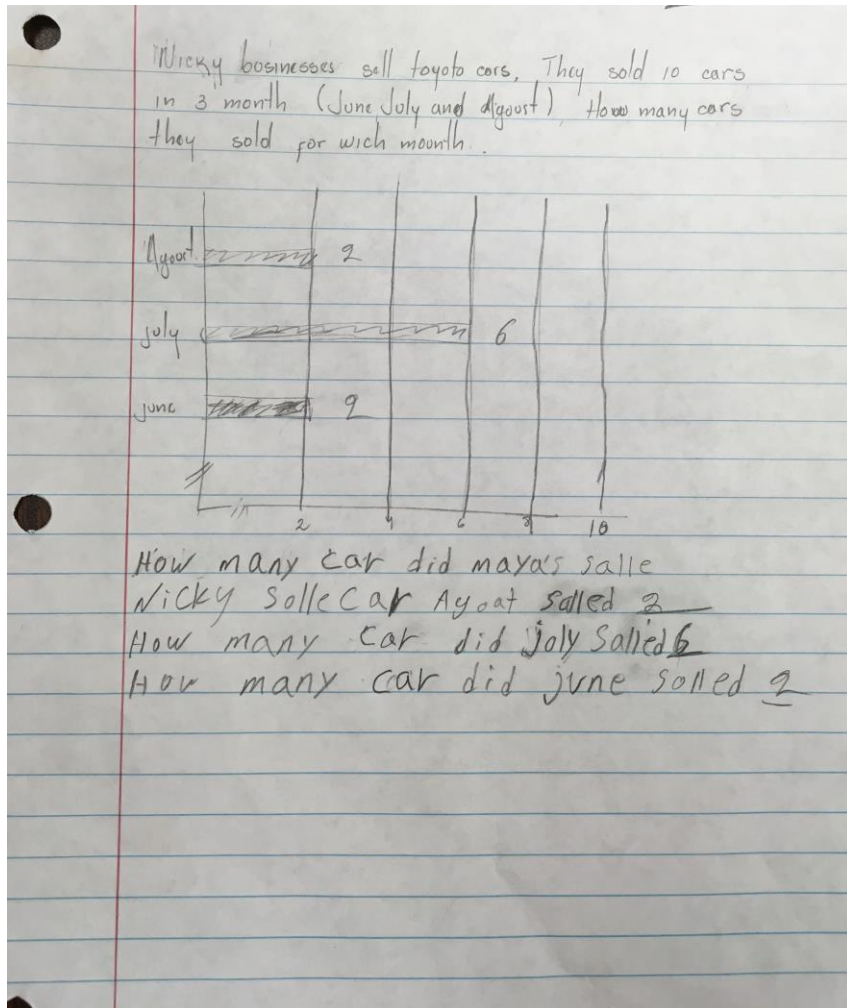 Nicky bosinesses sell toyoto cors, They sold 10 cars
in 3 month (June, July and Agoust) How many cors
they sold for wich mounth.
Agoust 2
july 6
june 2
2 4 6 8 10
How many car did maya's salle
Nicky Solle Car Agoat Salled 2
How many car did joly Salled 6
How many car did june Solled 2